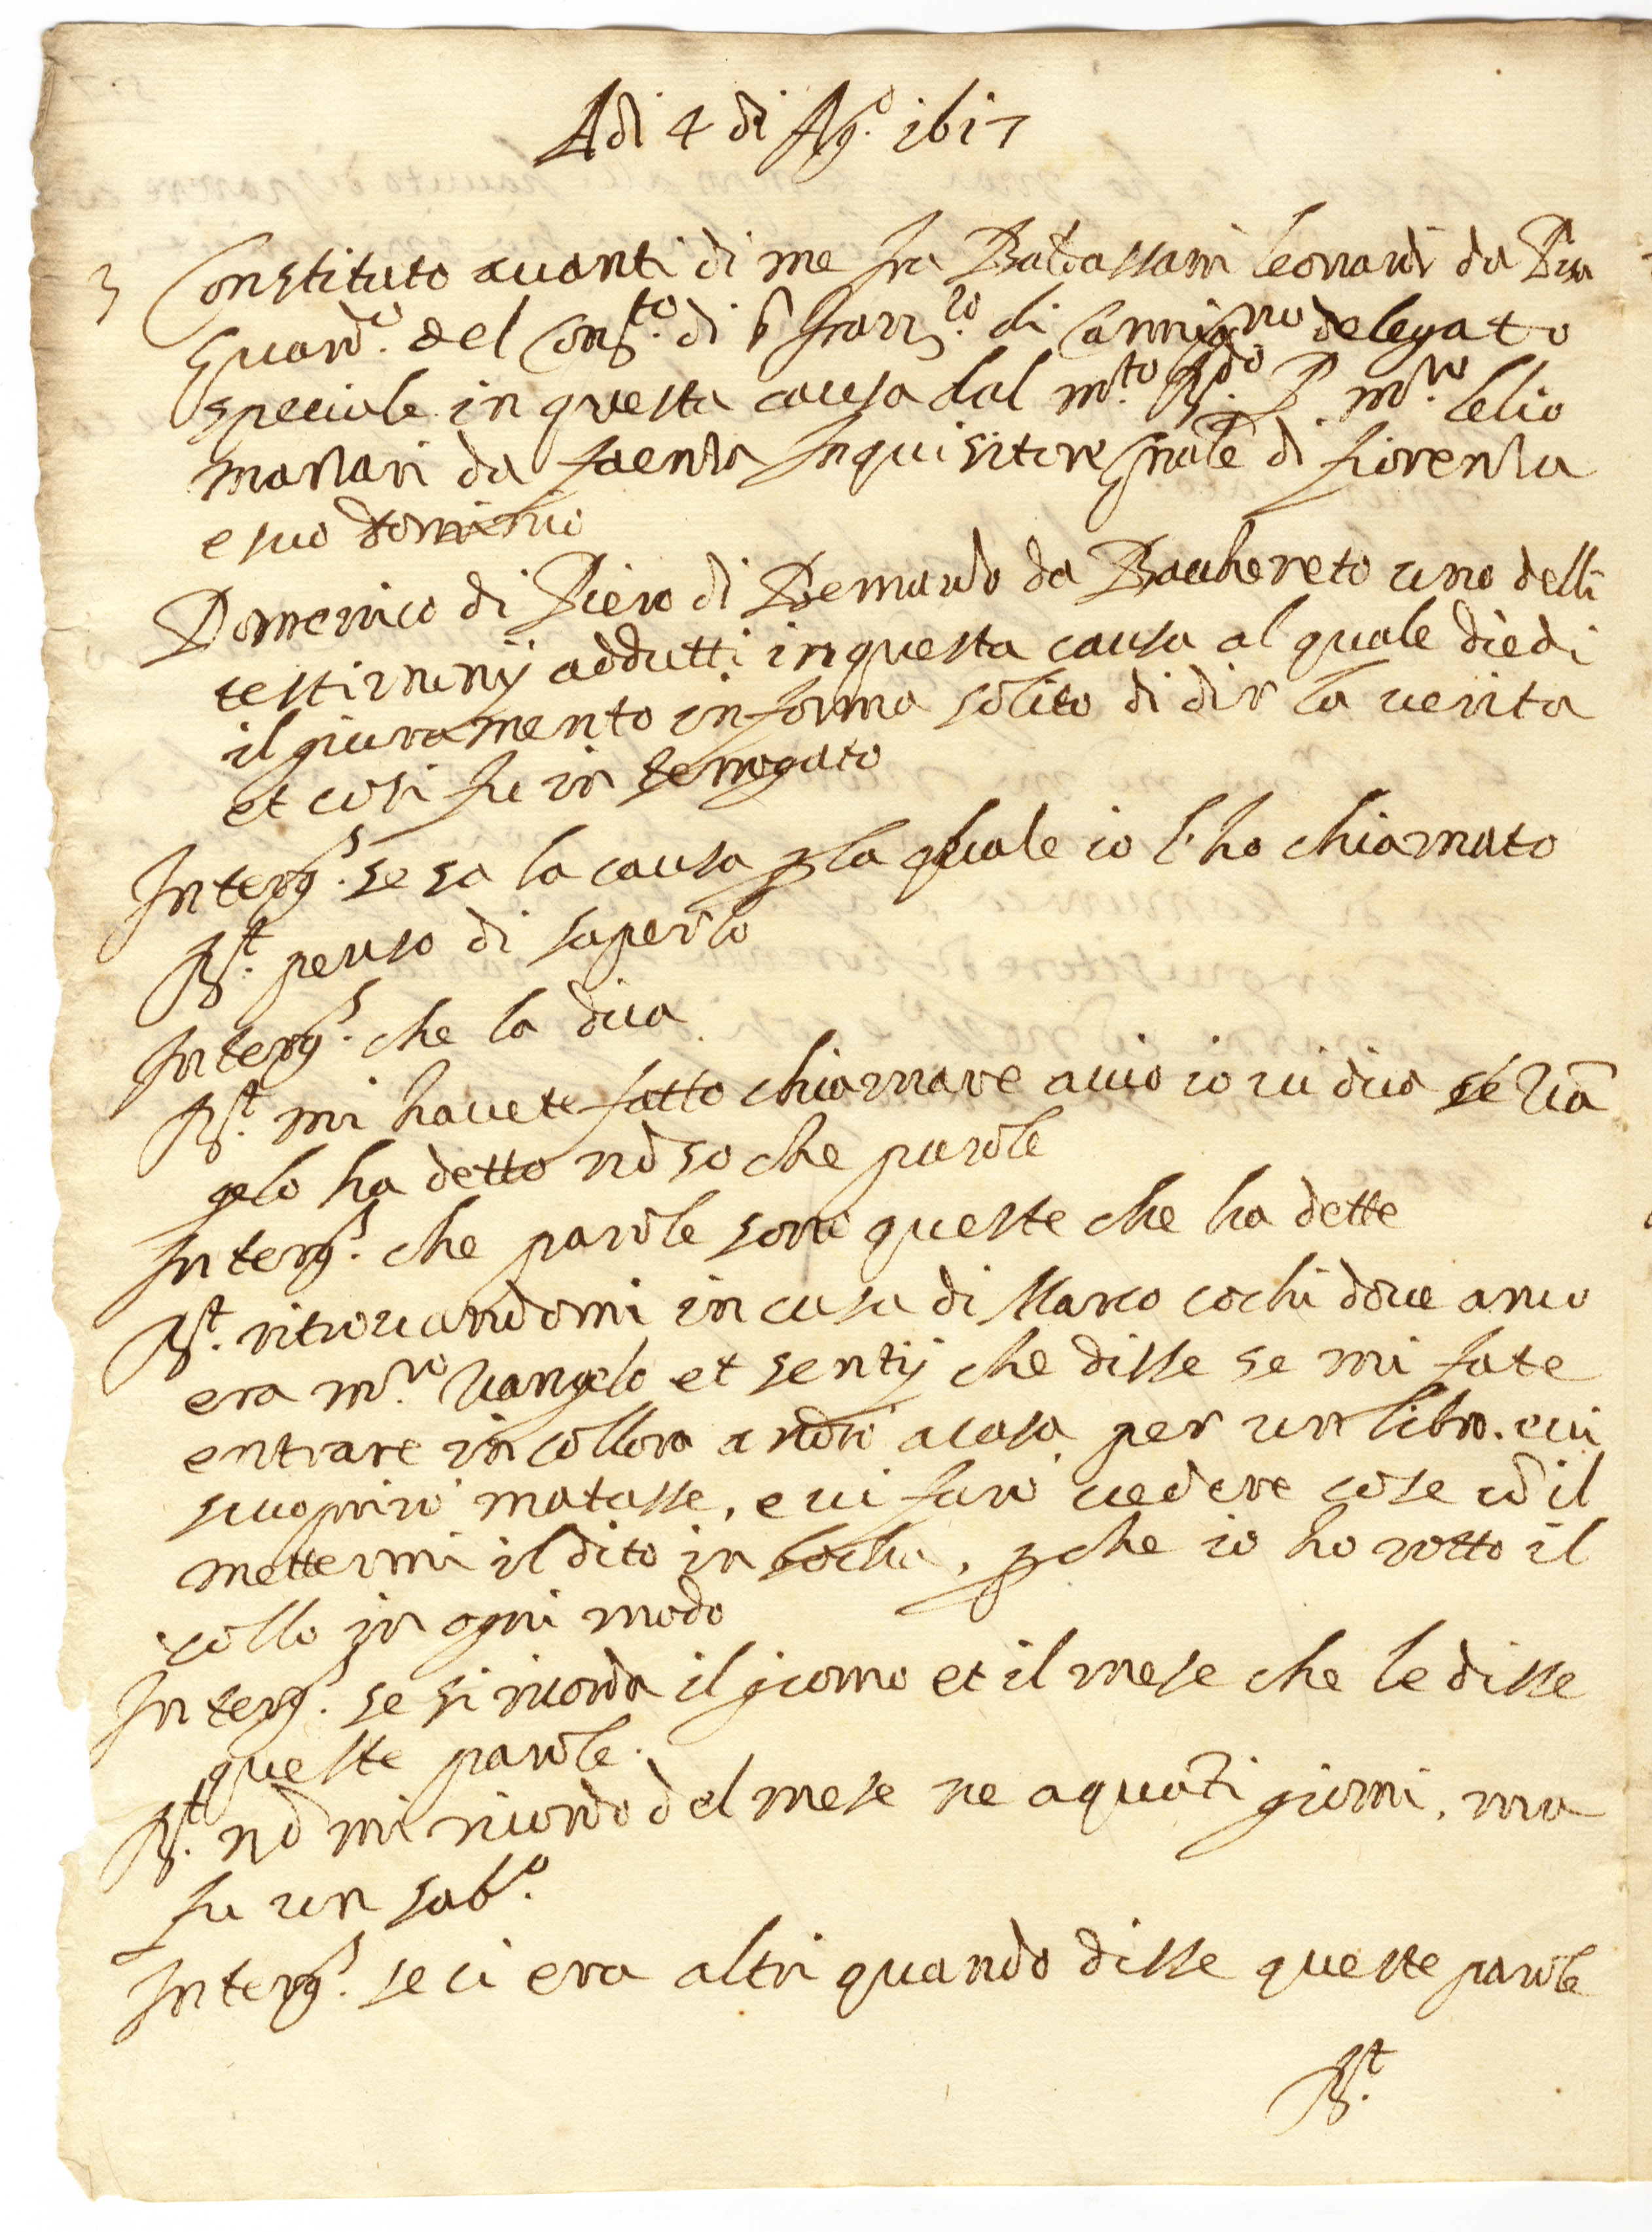 Adi 4 di Ag.o 1617
3 Constituto auanti di me fra Baldassarri leonardi da Pisa
Guard.o del Con.to di S franc.co di Carmig.no delegato
speciale in questa causa dal m.to R.do P. m.ro lelio
marzari da faenza Inquisitore gnale di fiorenza
e suo dominio
Domenico di Piero di Bernardo da Bacchereto uno delli
testimunij addutti in questa causa al quale diedi
il giuramento in forma solito di dir la uerita
et cosi fu in terrogato
Interg.s se sa la causa p la quale io l'ho chiamato
R.t penso di saperlo
Interg.s che la dica
R.t mi hauete fatto chiamare acio io ui dica se Uã
gelo ha detto nõ so che parole
Interg.s che parole sono queste che ha dette
R.t ritrouandomi in casa di Marco cochi doue anco
era m.ro Uangelo et sentij che disse se mi fate
entrare in collora andrò a casa per un libro. e ui
scuoprirò matasse, e ui farò uedere cose cõ il
mettermi il dito in bocha, pche io ho rotto il
collo in ogni modo
Interg.s se si ricorda il giorno et il mese che le disse
queste parole.
R.t nõ mi ricordo del mese ne a quãti giorni, ma
fu un sab.o
Interg.s se ci era altri quando disse queste parole
R.t